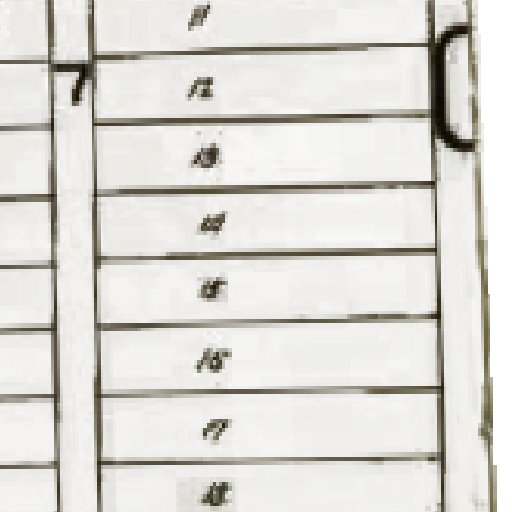 11
7
12
13
14
15
16
17
18